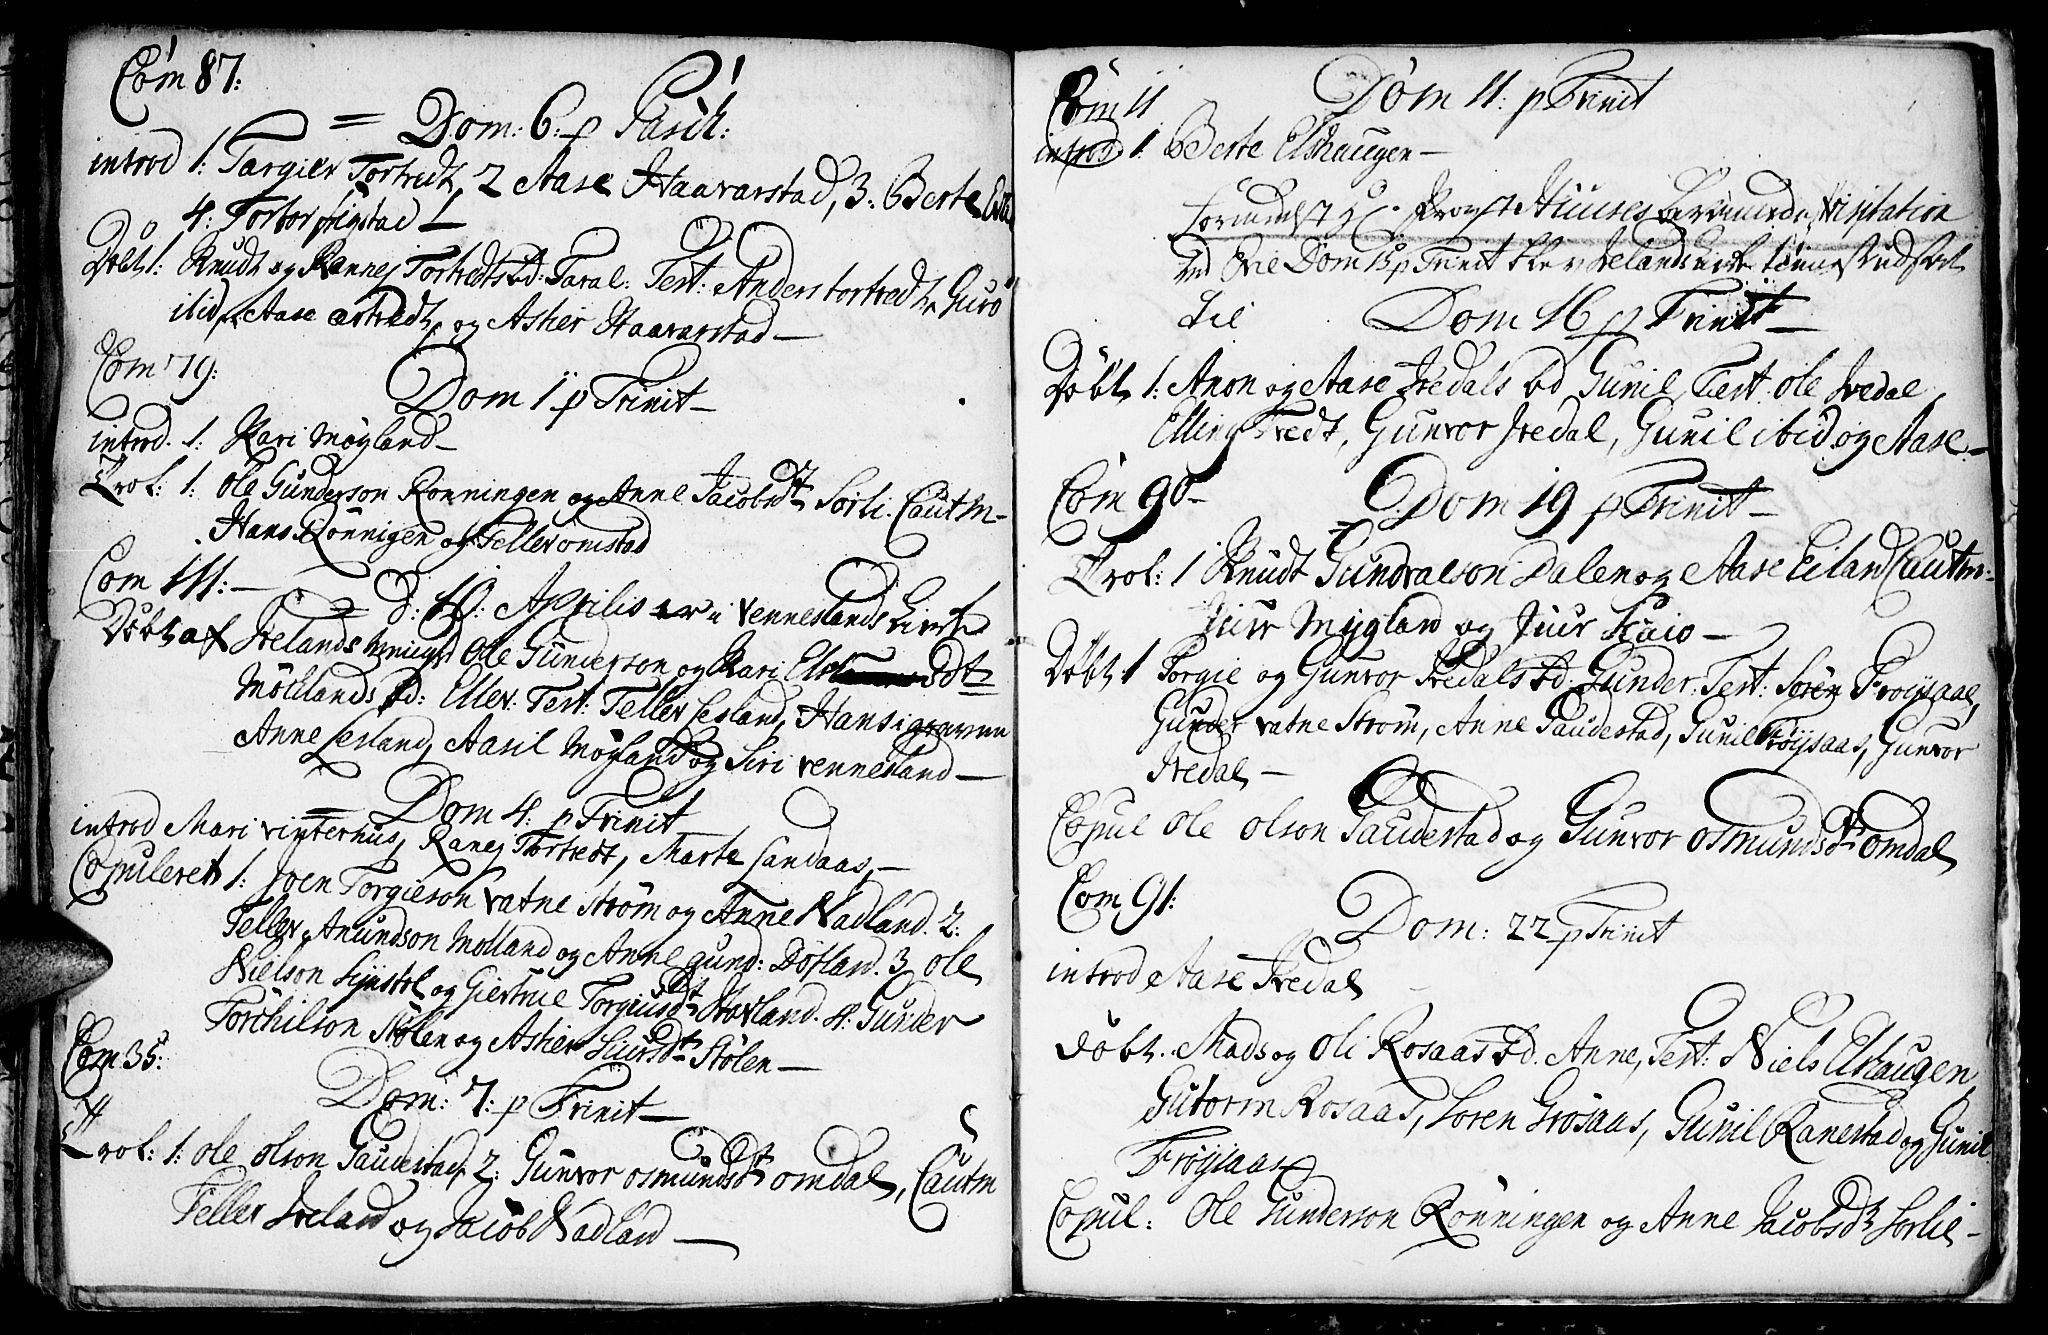 Com 87:
Dom: 6: p Pasch:
introd 1: Targier Tortredt, 2 Aase Haavarstad, 3: Berte
4: Torbor
Döbt 1: Knudt og Rannej Tortredts bd: Taral: Test: Anders tortredt, Guro
ibid, Aase tortredt, og Asher Haavarstad —
Com 79:
Dom 1 p Trinit —
introd. 1: Kari Möyland —
Trol: 1: Ole Gunderson Ronningen og Anne Jacobsdt Sorli. Cautm —
Hans Rönnigen og Teller omstad
Com 111: —
d: 10: Aprilis er i Venneslands kirke
Döbt af Irelands menighd Ole Gunderson og Kari dt
Möklands bd: Ellev: Test: Teller Lesland, Hans i
Anne Lesland, Aasil Möyland og Siri Vennesland —
= Dom 4: p Trinit
introd Mari vinterhus, Ranej Tortredt, Marte Sandaas, —
Copuleret 1: Joen Torgieson Vatne Ström og Anne Nadland. 2:
Teller Anundson Molland og Anne gund: Döfland. 3 Ole
Nielson og Giertrue Torgiusdt Hovland. 4: Gunder
Torchilson Stölen og Asher Siursdt Stölen —
Com 35:
Dom: 7: p Trinit —
Trol: 1: Ole Olson Gaudestad, 2: Gunvor Osmundsdt Omdal, Cautm
Teller Ireland og Jacob Nadland —
Com 11
Dom 11: p Trinit
introd 1: Berte Elshaugen —
Visitation
Dom 15 p Trinit blev Irelands kirke
til
Dom 16 p Trinit —
Döbt 1: Anon og Aase Iredals bd Gunil, Test: Ole Iredal,
Elling Tredt, Gunvor Iredal, Gunil ibid og Aase —
Com 90 —
Dom 19 p Trinit —
Trol: 1 Knudt Gundvalson Dalen og Aase Eiland Cautm:
Juur Mygland og Juur —
Döbt 1 Torgie og Gunvor Iredals bd: Gunder: Test: Sören Fröysaas,
Gunder vatne Ström, Anne Gaudestad, Gunil Fröysaas, Gunvor
Iredal —
Copul Ole Olson Gaudestad og Gunvor Osmundsdt Omdal
Com 91:
Dom: 22 p Trinit
introd Aase Iredal
Döbt. Mads og Oli Rosaas bd. Anne, Test: Niels Elshaugen,
Gutorm Rosaas, Soren Frösaas, Gunil Ranestad og Gunil
Fröysaas
Copul: Ole Gunderson Rönningen og Anne Jacobsdt Sorlie —